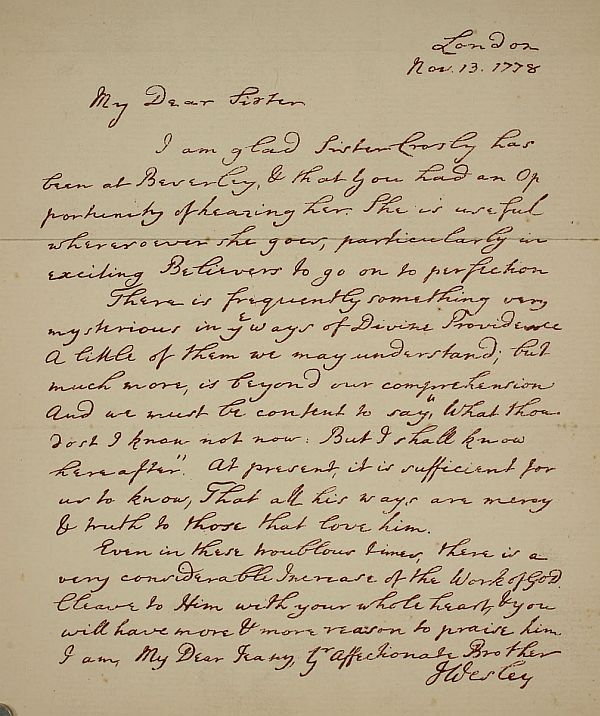 London
Nov. 13. 1778
My Dear Sister
I am glad Sister Crosby has
been at Beverley, & that You had an Op
portunity of hearing her. She is useful
wheresoever she goes, particularly in
exciting Believers to go on to perfection
There is frequently something very
mysterious in yᵉ ways of Divine Providence
A little of them we may understand; but
much more, is beyond our comprehension
And we must be content to say, "What thou
dost I know not now: But I shall know
hereafter". At present, it is sufficient for
us to know, That all his ways are mercy
& truth to those that love him.
Even in these troublous times, there is a
very considerable Increase of the Work of God.
Cleave to Him with your whole heart, & you
will have more & more reason to praise him
I am, My Dear Jenny, Yʳ Affectionate Brother
JWesley